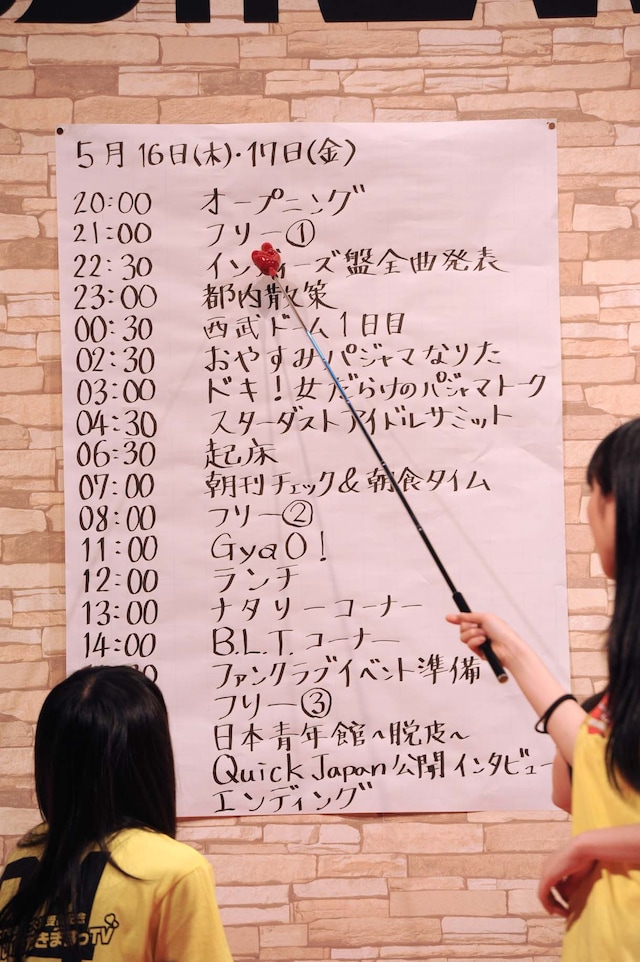 5月16日(木)・17日(金)
20:00 オープニング
21:00 フリー①
22:30 インディーズ盤全曲発表
23:00 都内散策
00:30 西武ドーム1日目
02:30 おやすみパジャマなりた
03:00 ドキ!女だらけのパジャマトーク
04:30 スターダストアイドルサミット
06:30 起床
07:00 朝刊チェック&朝食タイム
08:00 フリー②
11:00 GyaO!
12:00 ランチ
13:00 ナタリーコーナー
14:00 B.L.T.コーナー
ファンクラブイベント準備
フリー③
日本青年館~脱皮~
Quick Japan公開インタビュー
エンディング
TV